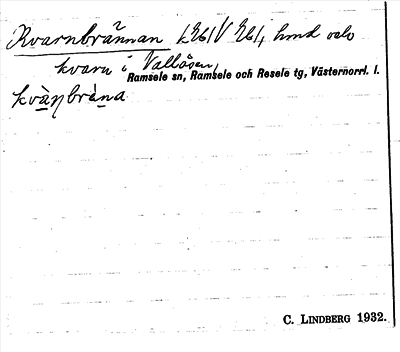 Kvarnbrännan k761V761, hmd och
kvarn i Vallåsen,
Ramsele sn, Ramsele och Resele tg, Västernorrl. l.
kvà̠ŋbrà̠na
C. LINDBERG 1932.